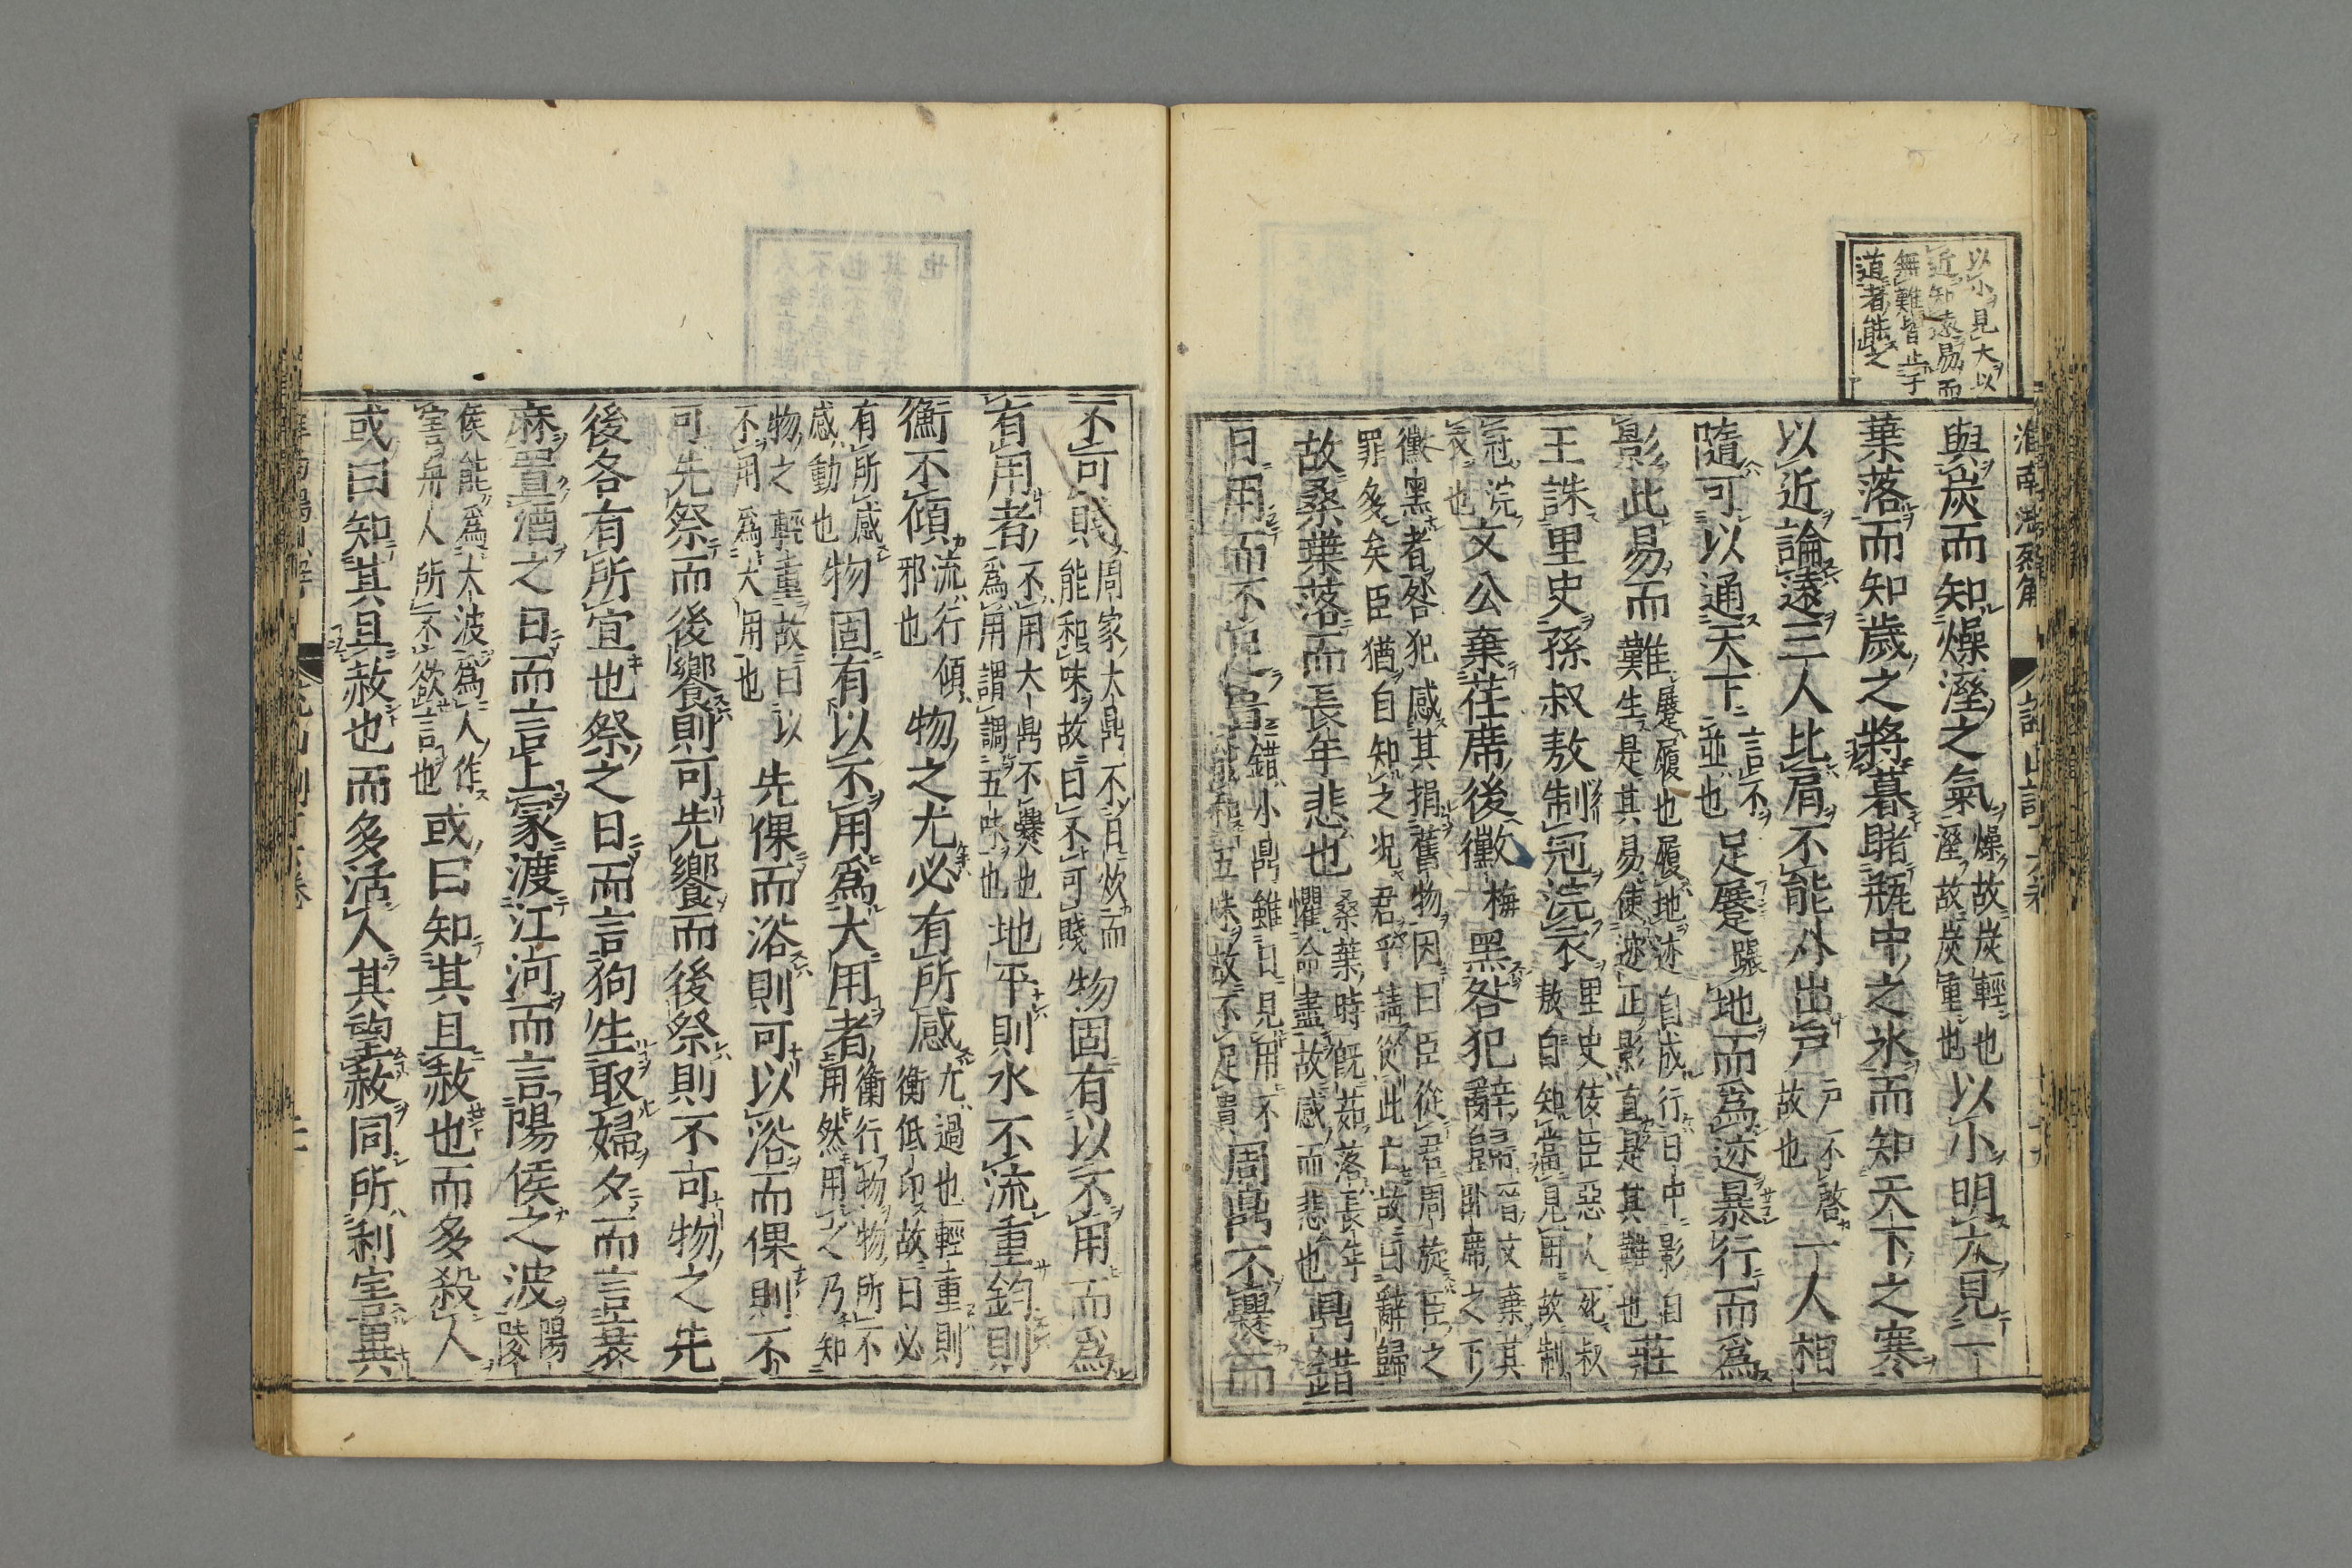 以小見大以
近知遠易而
無難皆止于
道者能之
與炭而知燥溼之氣燥故炭輕也溼故炭重也以小明大見一
葉落而知歲之將暮睹瓶中之氷而知天下之寒
以近論遠三人比肩不能外出戸戸不啓故也一人相
隨可以通天下言不並也足蹍蹍地而爲迹暴行而爲
影此易而難蹍履也履地迹自成行日中影自生是其易使迹正影直是其難也莊
王誅里史孫叔敖制冠浣衣里史佞臣惡人死叔敖自知當見用故制
冠浣衣也文公棄荏席後黴梅黑咎犯辭歸晉文棄其臥席之下
黴黑者咎犯感其捐舊物因曰臣從君周旋臣之罪多矣臣猶自知之况君乎請從此亡故曰辭歸
故桑葉落而長年悲也桑葉時旣茹落長年懼命盡故感而悲也鼎錯
日用而不足貴錯小鼎雖日見用不能和五味故不足貴周鼎不爨而
不可賤周家大鼎不日炊而能和味故曰不可賤物固有以不用而爲
有用者不用大鼎不爨也爲用謂調五味也地平則水不流重鈞則
衡不傾流行傾邪也物之尤必有所感尤過也輕重則衡低卬故曰必
有所感感動也物固有以不用爲大用者衡行物物所不用然用之乃知
物之輕重故曰以不用爲大用也先倮而浴則可以浴而倮則不
可先祭而後饗則可先饗而後祭則不可物之先
後各有所宜也祭之日而言狗生取婦夕而言衰
麻置酒之日而言上冡渡江河而言陽侯之波陽陵
侯能爲大波爲人作害舟人所不欲言也或曰知其且赦也而多殺人
或曰知其且赦也而多活人其望赦同所利害異